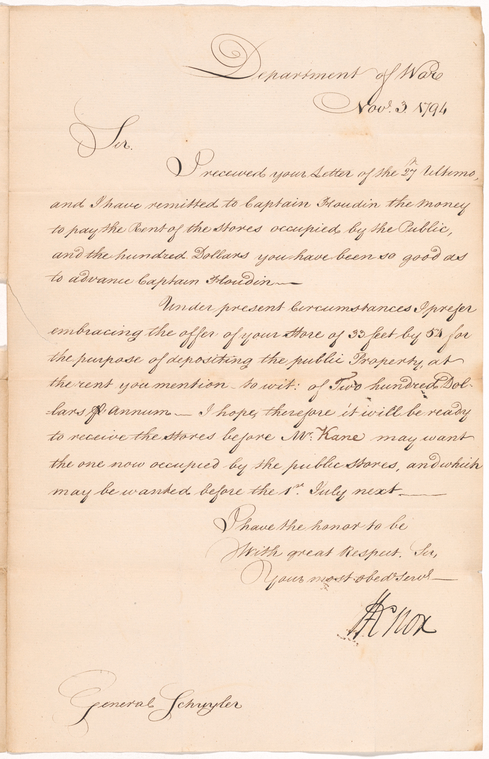 Department of War
Nov.r 3. 1794
Sir.
I received your Letter of the 27th Ultimo,
and I have remitted to Captain Houdin the money
to pay the Rent of the stores occupied by the Public,
and the hundred Dollars you have been so good as
to advance Captain Houdin—
Under present Circumstances I prefer
embracing the offer of your store of 33 feet by 54 for
the purpose of depositing the public Property, at
the rent you mention to wit: of Two hundred Dol-
-lars ⅌ annum— I hope, therefore it will be ready
to receive the stores before Mr. Kane may want
the one now occupied by the public stores, and which
may be wanted before the 1st. July next.—
I have the honor to be
With great Respect. Sir,
Your most obedt. servt.—
HKnox
General Schuyler